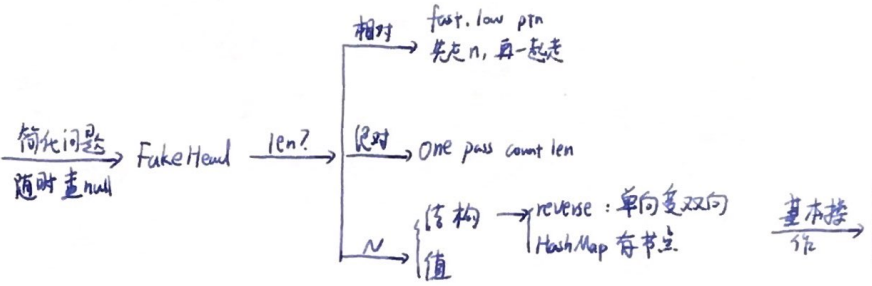 简化问题
随时查null
FakeHead
len?
相对
fast, low ptn
先走n, 再一起走
绝对
One pass count len
N
结构
值
reverse : 单向变双向
HashMap 存节点
基本操
作